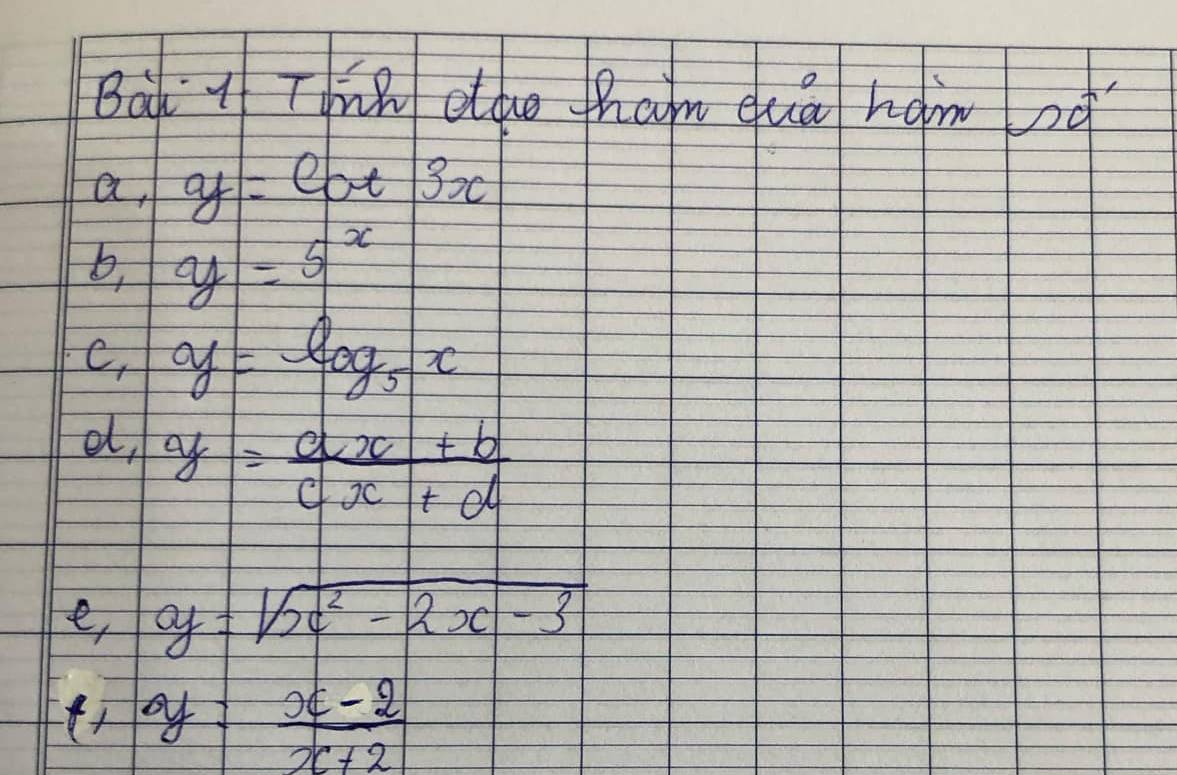 Bài 1 Tính đạo hàm của hàm số
a, y = Cot 3x
b, y = 5^x
c, y = log_5 x
d, y = ax + b
cx + d
e, y = √x² - 2x - 3
f, y = x - 2
x + 2